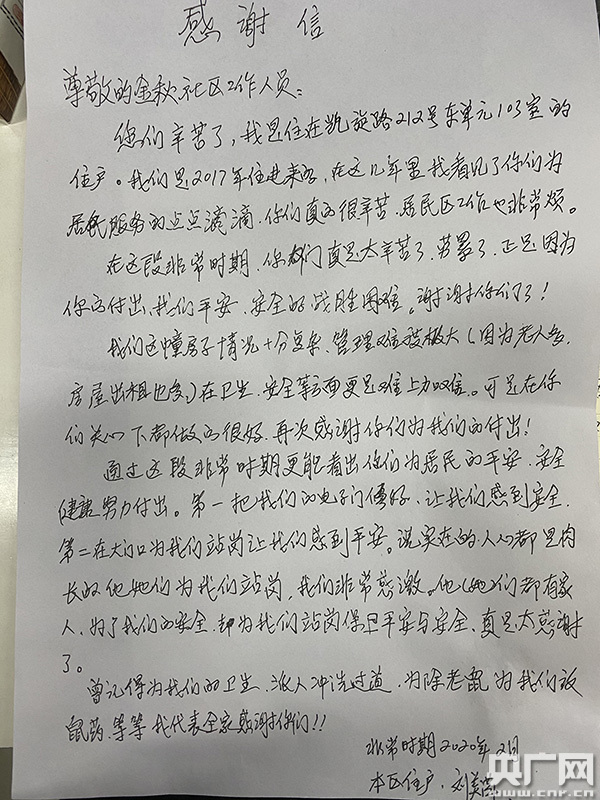 感谢信
尊敬的金秋社区工作人员：
您们辛苦了，我是住在凯旋路212号东单元103室的
住户。我们是2017年住进来的，在这几年里我看见了你们为
居民服务的点点滴滴，你们真的很辛苦，居民区工作也非常烦。
在这段非常时期，你们真是太辛苦了，劳累了，正是因为
你的付出，我们平安、安全的战胜困难。谢谢你们了！
我们这幢房子情况十分复杂，管理难度极大（因为老人多，
房屋出租也多）在卫生、安全等方面更是难上加难。可是在你
们关心下都做的很好，再次感谢你们为我们的付出！
通过这段非常时期更能看出你们为居民的平安、安全
健康努力付出。第一把我们的电子门修好，让我们感到安全，
第二在大门口为我们站岗让我们感到平安。说实在的，人心都是肉
长的他她们为我们站岗，我们非常感激。他（她）们都有家
人，为了我们的安全，却为我们站岗保卫平安与安全，真是太感谢
了。
曾记得为我们的卫生，派人冲洗过道，为除老鼠为我们放
鼠药，等等我代表全家感谢你们！！
非常时期2020年2月
本区住户，刘美
央广网
www.cnr.cn